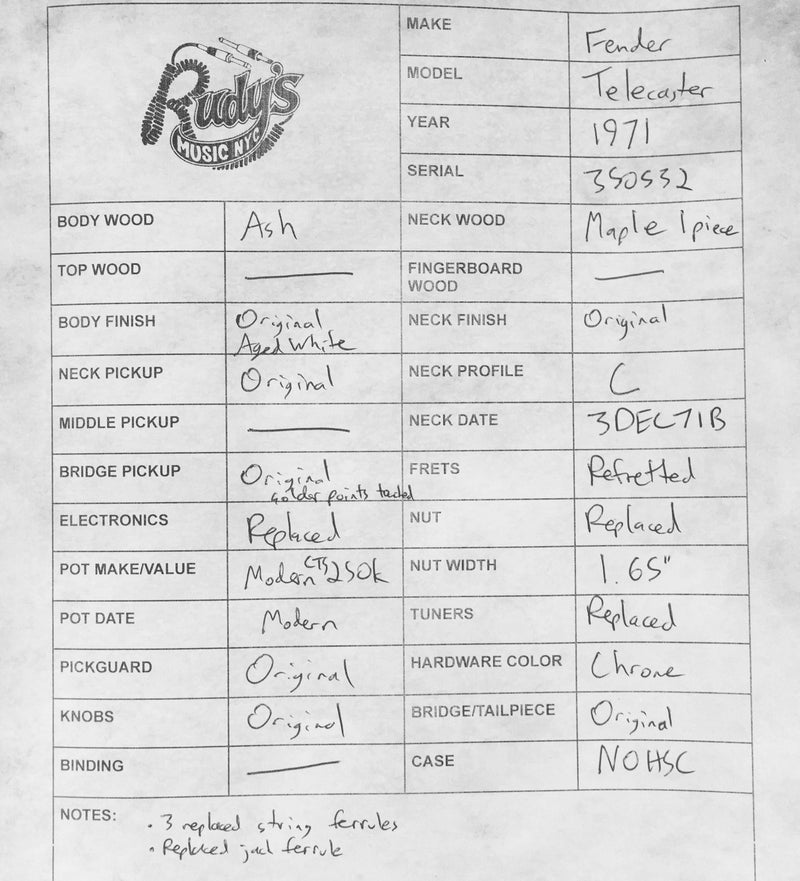 Rudy's
MUSIC NYC
MAKE Fender
MODEL Telecaster
YEAR 1971
SERIAL 350532
BODY WOOD Ash NECK WOOD Maple 1 piece
TOP WOOD — FINGERBOARD WOOD —
BODY FINISH Original Aged White NECK FINISH Original
NECK PICKUP Original NECK PROFILE C
MIDDLE PICKUP — NECK DATE 3DEC71B
BRIDGE PICKUP Original solder points touched FRETS Refretted
ELECTRONICS Replaced NUT Replaced
POT MAKE/VALUE Modern CTS 250k NUT WIDTH 1.65"
POT DATE Modern TUNERS Replaced
PICKGUARD Original HARDWARE COLOR Chrome
KNOBS Original BRIDGE/TAILPIECE Original
BINDING — CASE NOHSC
NOTES: • 3 replaced string ferrules
• Replaced jack ferrule